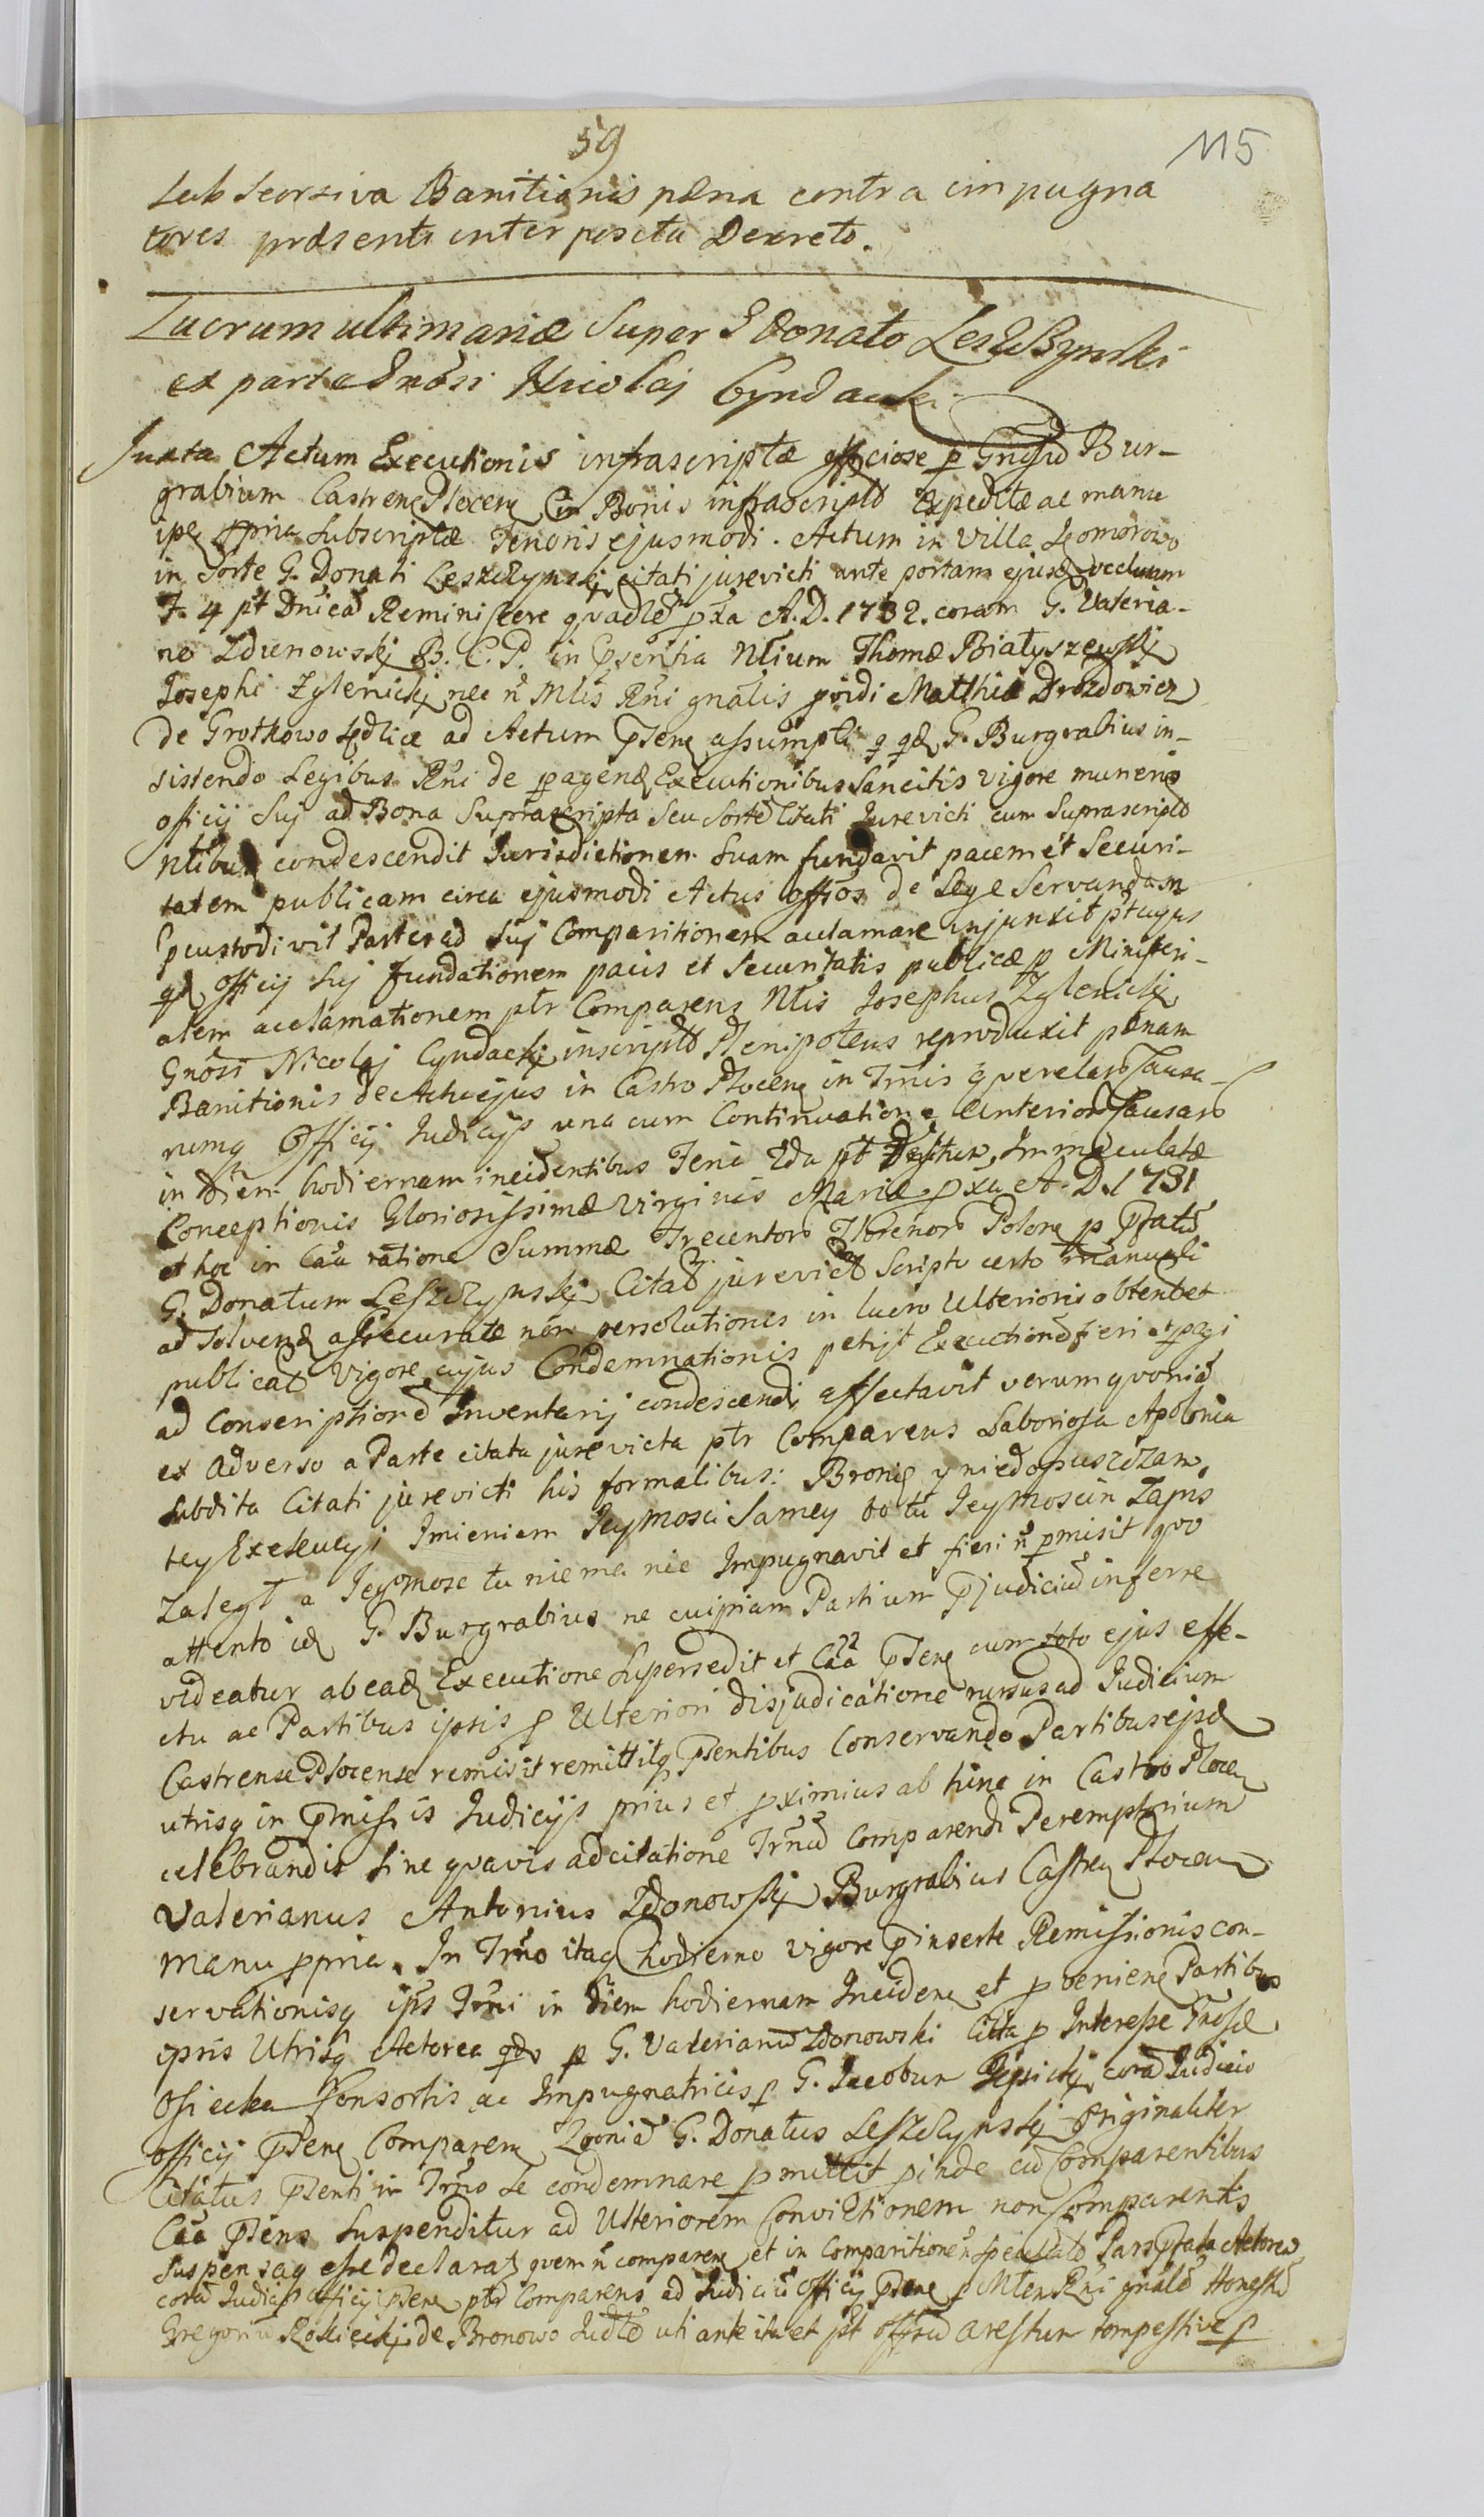 59
115
Sub Seorsiva Banitionis pæna contra impugna
tores præsenti interposita Decreto.
Lucrum ultimariæ Super G Donato Leszczynski
ex parte Gnosi Nicolai Cyndacki
Juxta Actum Executionis infrascriptæ officiose p Gnosu Bur-
grabium Castren Plocen in Bonis infrascript expeditæ ac manu
ipse ppria Subscriptæ Tenoris ejusmodi. Actum in Villa Komorowo
in Sorte G. Donati Leszczynskj citati jurevicti ante portam ejusd
F. 4 pt Dnica Reminiscere qvadle pxa A. D. 1732. coram G. Valeria-
no Zdunowskj B. C. P. in Psentia Ntium Thomæ Białyszewskj
Josephi Zylenickj nec n Mtis Rni gnalis pvidi Matthiæ Drozdowicz
de Grotkowo Sedlicæ ad Actum Psene assumpti q qd G. Burgrabius in-
sistendo Legibus Rni de pagend Executionibus Sancitis vigore muneris
officij Suj ad Bona Suprascripta Seu Sorte Citati Jurevicti cum Suprascript
Ntibus condescendit Jurisdictionem Suam fundavit pacem et Securi-
tatem publicam circa ejusmodi Actus offios de Lege Servandam
Pcustodivit Partes ad Suj Comparitionem acclamare injunxit
qd officij Suj fundationem pacis et Securitatis publicæ p Ministeri-
alem acclamationem ptr Comparens Ntis Josephus Zylenickj
Gnosi Nicolaj Cyndackj inscript Plenipotens reproduxit pænam
Banitionis de Actu ejus in Castro Plocen in Trnis qverelar Causa-
rumq Officij Judicijs una cum Continuatione anterior Causar
in Diem hodiernam incidentibus Feria 2da pt Festum Immaculatæ
Conceptionis Gloriosissimæ Virginis Mariæ pxa A. D. 1731
et hoc in Caa ratione Summæ Trecentor Florenor Polone p Pfatu
G. Donatum Leszczynskj Citat jurevict Scripto certo manuali
ad Solvend assecuratæ non persolutionis in lucro Ulterioris obtent et
publicat Vigore cujus Condemnationis petijt Executione fieri et pagi
ad Conscriptione Inventarij condescendi affectavit verum qvonia
ex Adverso a Parte citata jurevicta ptr Comparens Laboriosa Apolonia
Subdita Citati jurevicti his formalibus: Bronię y niedopuszczam,
tey Exekucyi Imieniem Jeymosci Samey bo tu Jeymoscin Zapis
Zaległ a Jegomosc tu niema nic Impugnavit et fieri n pmisit qvo
attento id G. Burgrabius ne cuipiam Partium Pjudiciu inferre
videatur ab ead Executione Supersedit et Caa Psene cum toto ejus effe-
ctu ac Partibus ipsis p Ulteriori disjudicatione rursus ad Judicium
Castrense Plocense remisit remittitq Psentibus Conservando Partibus ejsd
utrisq in Pmissis Judicijs prius et pximius ab hinc in Castro Plocen
celebrandis Sine qvavis adcitatione Trnu Comparendi Peremptorium
Valerianus Antonius Zdonowskj Burgrabius Castren Plocen
manu ppria. In Trno itaq hodierno vigore Pinsertæ Remissionis con-
servationisq ipis Trni in Diem hodiernam Inciden et pvenien Partibus
ipris Utrisq Actorea qd p G. Valerianu Zdonowski Citta p Interesse Gnosæ
Osiecka Consortis ac Impugnatricis p G. Jacobum cora Judicio
officij Psene Comparen Qvonia G. Donatus Leszczynskj Originaliter
Citatus Psenti in Trno Se condemnare pmittit pinde cu Comparentibus
Caa Psens Suspenditur ad Ulteriorem Convictionem non Comparentis
Suspensaq esse declarat qvem n comparen et in Comparitione n Pars Pfata Actorea
cora Judicijs officij Psene ptr Comparens ad Judiciu officij Psene p Mtem Rni gnale Honestu
Gregoriu Rokickj de Bronowo Judle uti ante ita et pt offiu arestum tempestive p